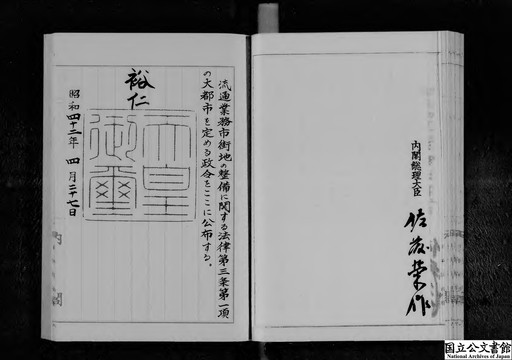 流通業務市街地の整備に関する法律第三条第一項
の大都市を定める政令をここに公布する。
裕仁
天皇
御璽
昭和四十二年四月二十七日
内閣総理大臣
佐藤栄作
国立公文書館
National Archives of Japan